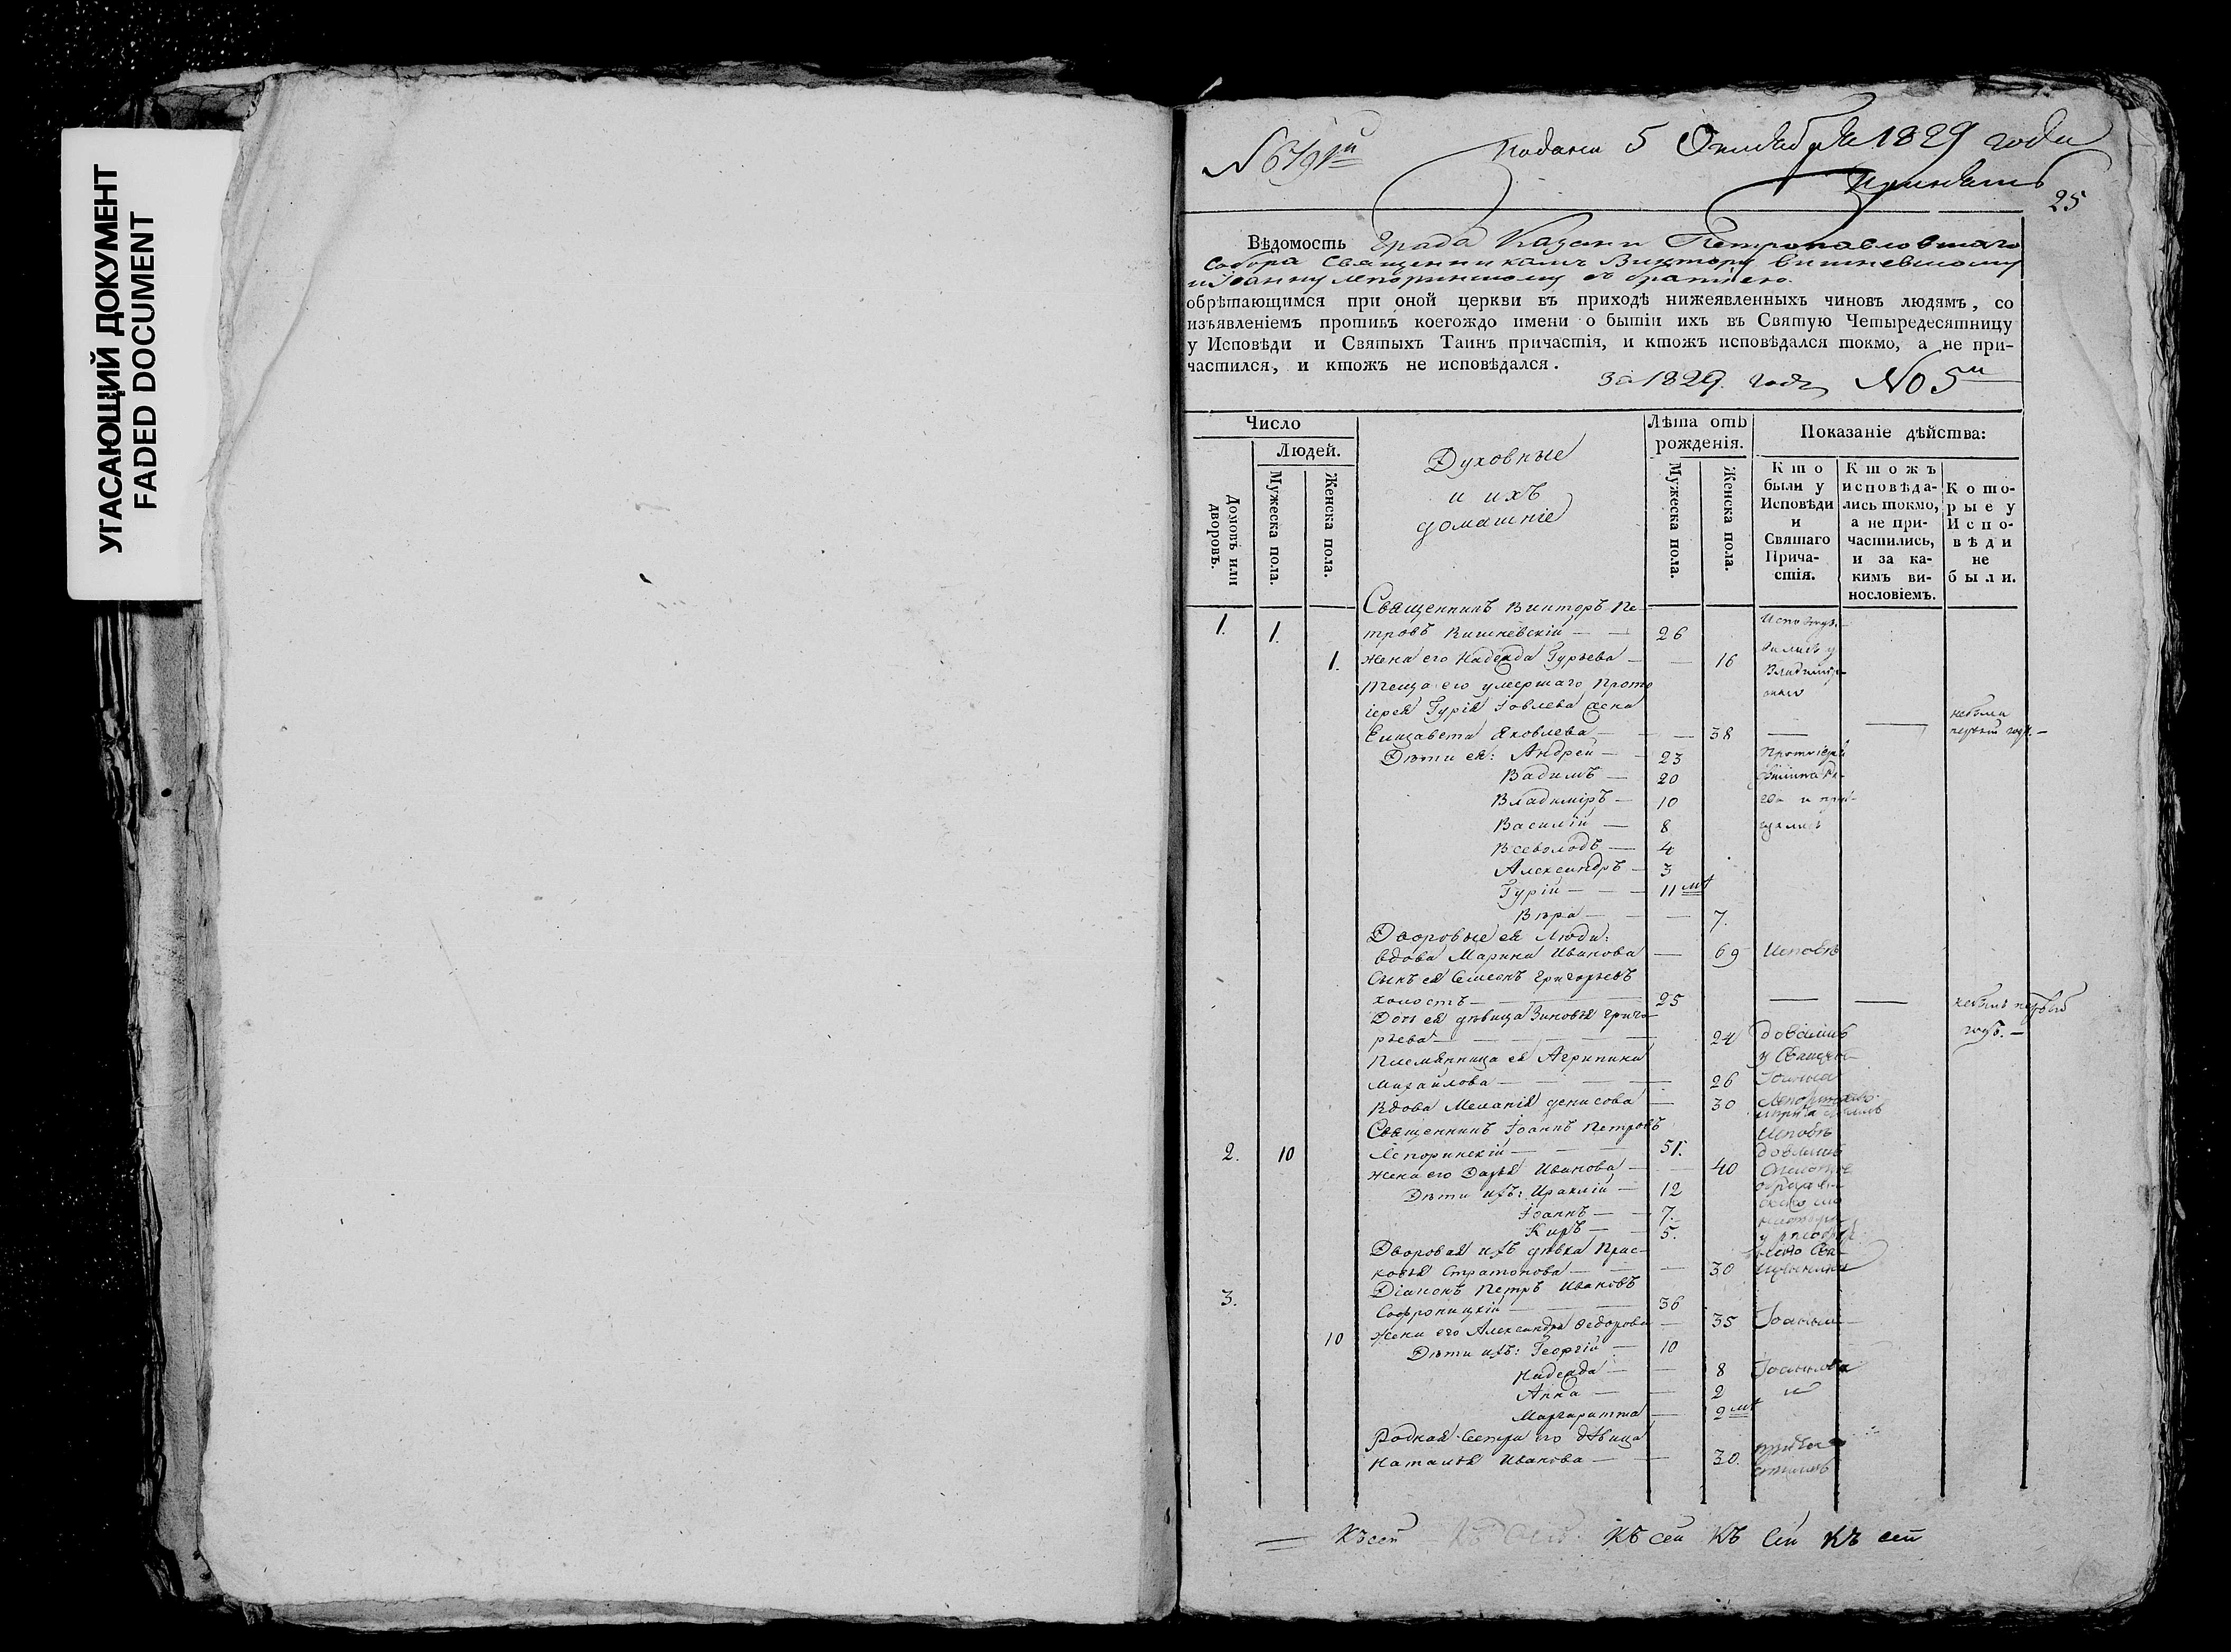 УГАСАЮЩИЙ ДОКУМЕНТ
FADED DOCUMENT
Подана 5 Октября 1829 года
25
Вѣдомость Града Казани Петропавловскаго
Собора Священникамъ Виктору Вишневскому
и Іоанну Лепоринскому съ братіею
обрѣтающимся при оной церкви въ приходѣ нижеявленныхъ чиновъ людямъ, со
изъявленіемъ противъ коегождо имени о бытіи ихъ въ Святую Четыредесятницу
у Исповѣди и Святыхъ Таинъ причастія, и ктожъ исповѣдался токмо, а не при-
частился, и ктожъ не исповѣдался.
за 1829. годъ №5й
Число
Людей.
Домовъ или дворовъ.
Мужеска пола.
Женска пола.
Духовные
и ихъ
домашніе
Лѣта отъ
рожденія.
Мужеска пола.
Женска пола.
Показаніе дѣйства:
Кто
были у
Исповѣди
и
Святаго
Прича-
стія.
Ктожъ
исповѣда-
лись токмо,
а не при-
частились,
и за ка-
кимъ ви-
нословіемъ.
Кото-
рые у
Испо-
вѣди
не
были.
Священникъ Викторъ Пе-
1. 1. тровъ Вишневскій — — 26
1. жена его Надежда Гурьева — — 16
Теща его умершаго Прото
іерея Гурія Іовлева жена
Елизавета Яковлева — — — 38 — — небыла первый годъ. —
Дѣти ея: Андрей — 23
Вадимъ — 20
Владиміръ — 10
Василій — 8
Всеволодъ — 4
Александръ — 3
Гурій — — — 11 мѣ
Вѣра — — — 7.
Дворовые ея люди:
вдова Марина Иванова — 69 Исповѣ
Сынъ ея Семенъ Григорьевъ
холостъ — — 25 — — небылъ первый
Дочь ея дѣвица Зиновья Григо
рьева — — — — 24 годъ. —
Племянница ея Агрипина
Михайлова — — — — 26
Вдова Меланія Денисова — 30
Священникъ Іоаннъ Петровъ
2. 10 Лепоринскій — — — 51.
жена его Дарья Иванова — — 40
Дѣти ихъ: Ираклій — 12
Іоаннъ — — 7.
Киръ — — 5.
Дворовая ихъ дѣвка Прас-
ковья Стратонова — — — 30
3. Діаконъ Петръ Ивановъ
Софроницкій — — — 36
10 жена его Александра Ѳедорова — 35
Дѣти ихъ: Георгій — 10
Надежда — — 8
Анна — — 2
Маргаритта — 2 мѣ
Родная Сестра его дѣвица
Наталья Иванова — — 30.
Къ сей Къ сей Къ сей Къ сей Къ сей